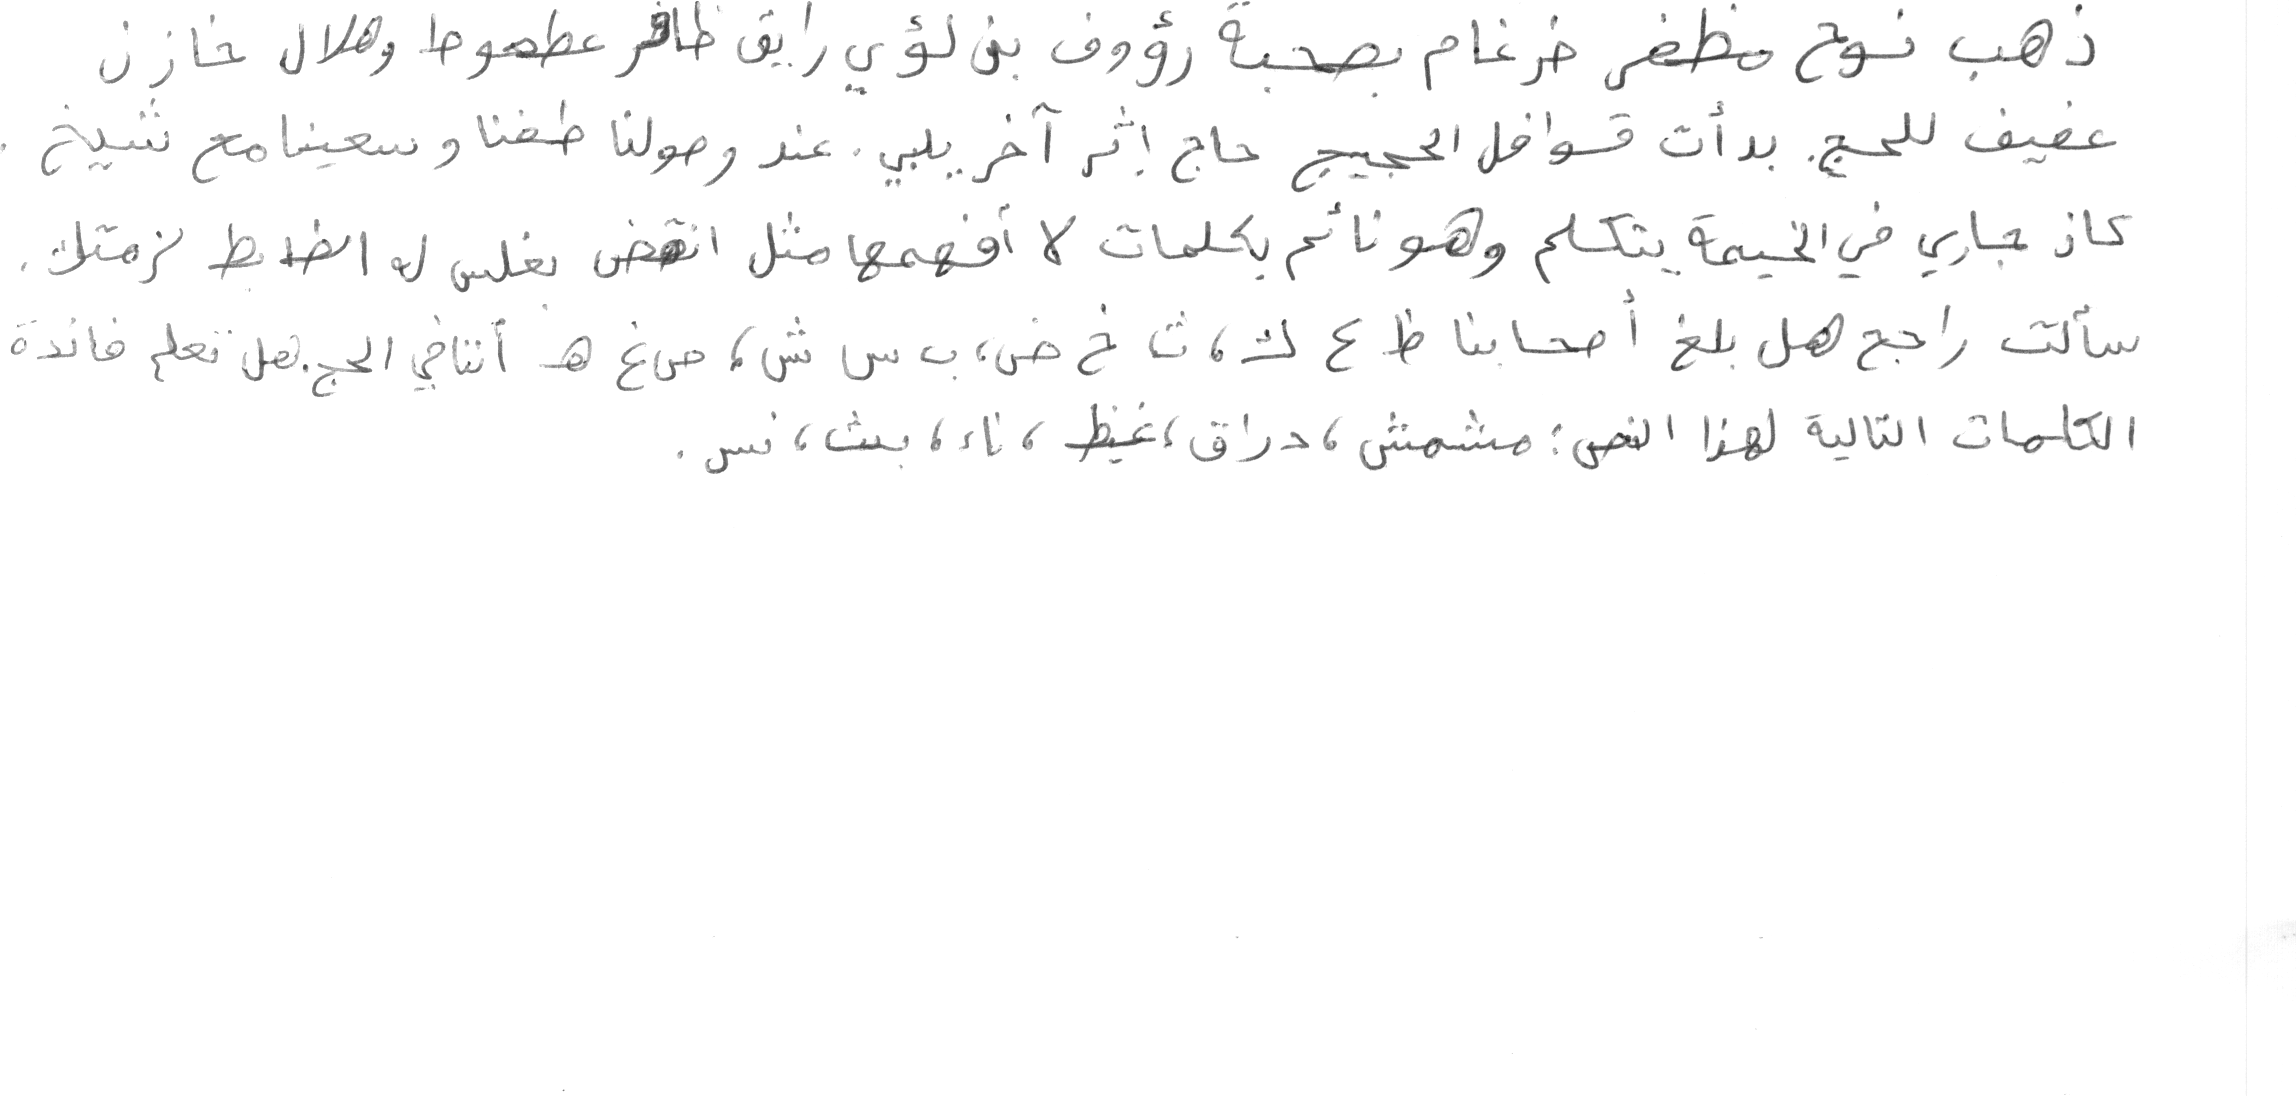 ذهب نوح مظفر ضرغام بصحبة رؤوف بن لؤي رايق ظافر عطعوط وهلال خازن
عفيف للحج. بدأت قوافل الحجيج حاج إثر آخر يلبي. عند وصولنا طفنا وسعينا مع شيخ.
كان جاري في الخيمة يتكلم وهو نائم بكلمات لا أفهمها مثل انتهض بغلس له الظابط لزمتك.
سألت راجح هل بلغ أصحابنا ظ ع ك، ث خ ض، ب س ش، ص غ هـ أننا في الحج. هل تعلم فائدة
الكلمات التالية لهذا النص: مشمش، دراق، غيظ، ناء، بث، نس.